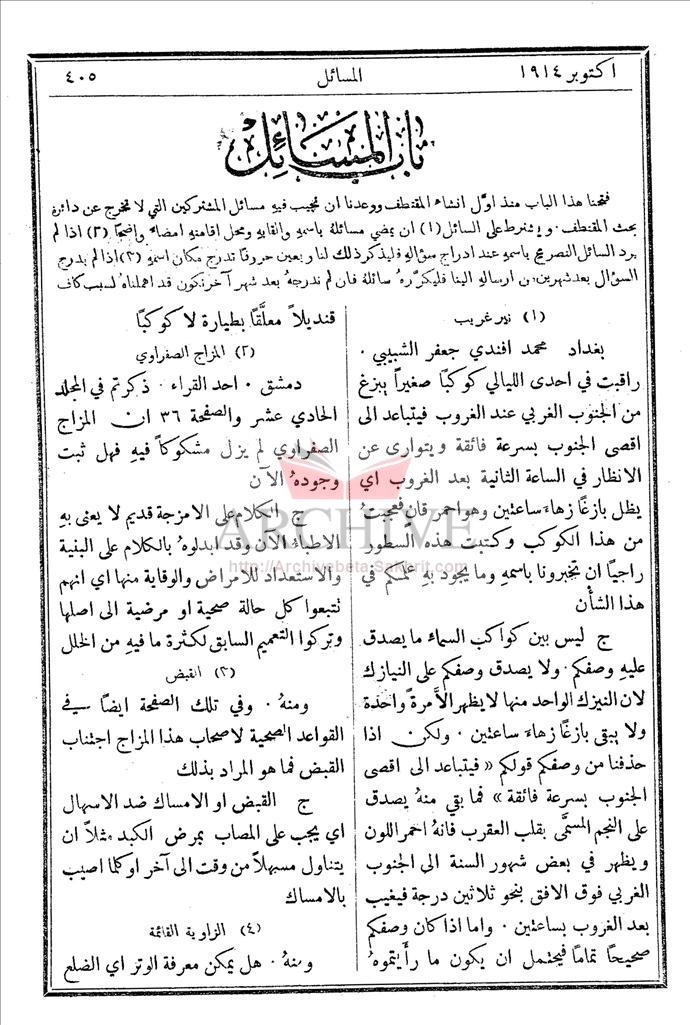 اكتوبر ١٩١٤
المسائل
٤٠٥
باب المسائل
فتحنا هذا الباب منذ اوَّل انشاء المقتطف ووعدنا ان نجيب فيهِ مسائل المشتركين التي لا تخرج عن دائرة
بحث المقتطف . ويشترط على السائل (١) ان يمضي مسائلهُ باسمهِ والقابهِ ومحل اقامتهِ امضاءً واضحًا (٢) اذا لم
يرد السائل التصريح باسمهِ عند ادراج سؤالهِ فليذكر ذلك لنا ويعين حروفًا تدرج مكان اسمهِ (٣) اذا لم يدرج
السؤال بعد شهرين من ارسالهِ الينا فليكرّرهُ سائلهُ فان لم ندرجهُ بعد شهر آخر نكون قد اهملناهُ لسبب كاف
(١) نير غريب
بغداد محمد افندي جعفر الشبيبي .
راقبت في احدى الليالي كوكبًا صغيرًا يبزغ
من الجنوب الغربي عند الغروب فيتباعد الى
اقصى الجنوب بسرعة فائقة ويتوارى عن
الانظار في الساعة الثانية بعد الغروب اي
يظل بازغًا زهاء ساعتين وهو احمر قان فعجبتُ
من هذا الكوكب وكتبت هذه السطور
راجيًا ان تخبرونا باسمهِ وما يجود بهِ علمكم في
هذا الشأن
ج ليس بين كواكب السماء ما يصدق
عليهِ وصفكم . ولا يصدق وصفكم على النيازك
لان النيزك الواحد منها لا يظهر الاَّ مرةً واحدة
ولا يبقى بازغًا زهاء ساعتين . ولكن اذا
حذفنا من وصفكم قولكم « فيتباعد الى اقصى
الجنوب بسرعة فائقة » فما بقي منهُ يصدق
على النجم المسمَّى بقلب العقرب فانهُ احمر اللون
ويظهر في بعض شهور السنة الى الجنوب
الغربي فوق الافق بنحو ثلاثين درجة فيغيب
بعد الغروب بساعتين . واما اذا كان وصفكم
صحيحًا تمامًا فيحتمل ان يكون ما رأيتموهُ
قنديلاً معلَّقًا بطيارة لا كوكبًا
(٢) المزاج الصفراوي
دمشق . احد القراء . ذكرتم في المجلد
الحادي عشر والصفحة ٣٦ ان المزاج
الصفراوي لم يزل مشكوكًا فيهِ فهل ثبت
وجودهُ الآن
ج الكلام على الامزجة قديم لا يعنى بهِ
الاطباء الآن وقد ابدلوهُ بالكلام على البنية
والاستعداد للامراض والوقاية منها اي انهم
تتبعوا كل حالة صحية او مرضية الى اصلها
وتركوا التعميم السابق لكثرة ما فيهِ من الخلل
(٣) القبض
ومنهُ . وفي تلك الصفحة ايضًا في
القواعد الصحية لاصحاب هذا المزاج اجتناب
القبض فما هو المراد بذلك
ج القبض او الامساك ضد الاسهال
اي يجب على المصاب بمرض الكبد مثلاً ان
يتناول مسهلاً من وقت الى آخر او كلما اصيب
بالامساك
(٤) الزاوية القائمة
ومنهُ . هل يمكن معرفة الوتر اي الضلع
ARCHIVE
http://Archivebeta.Sakhrit.com